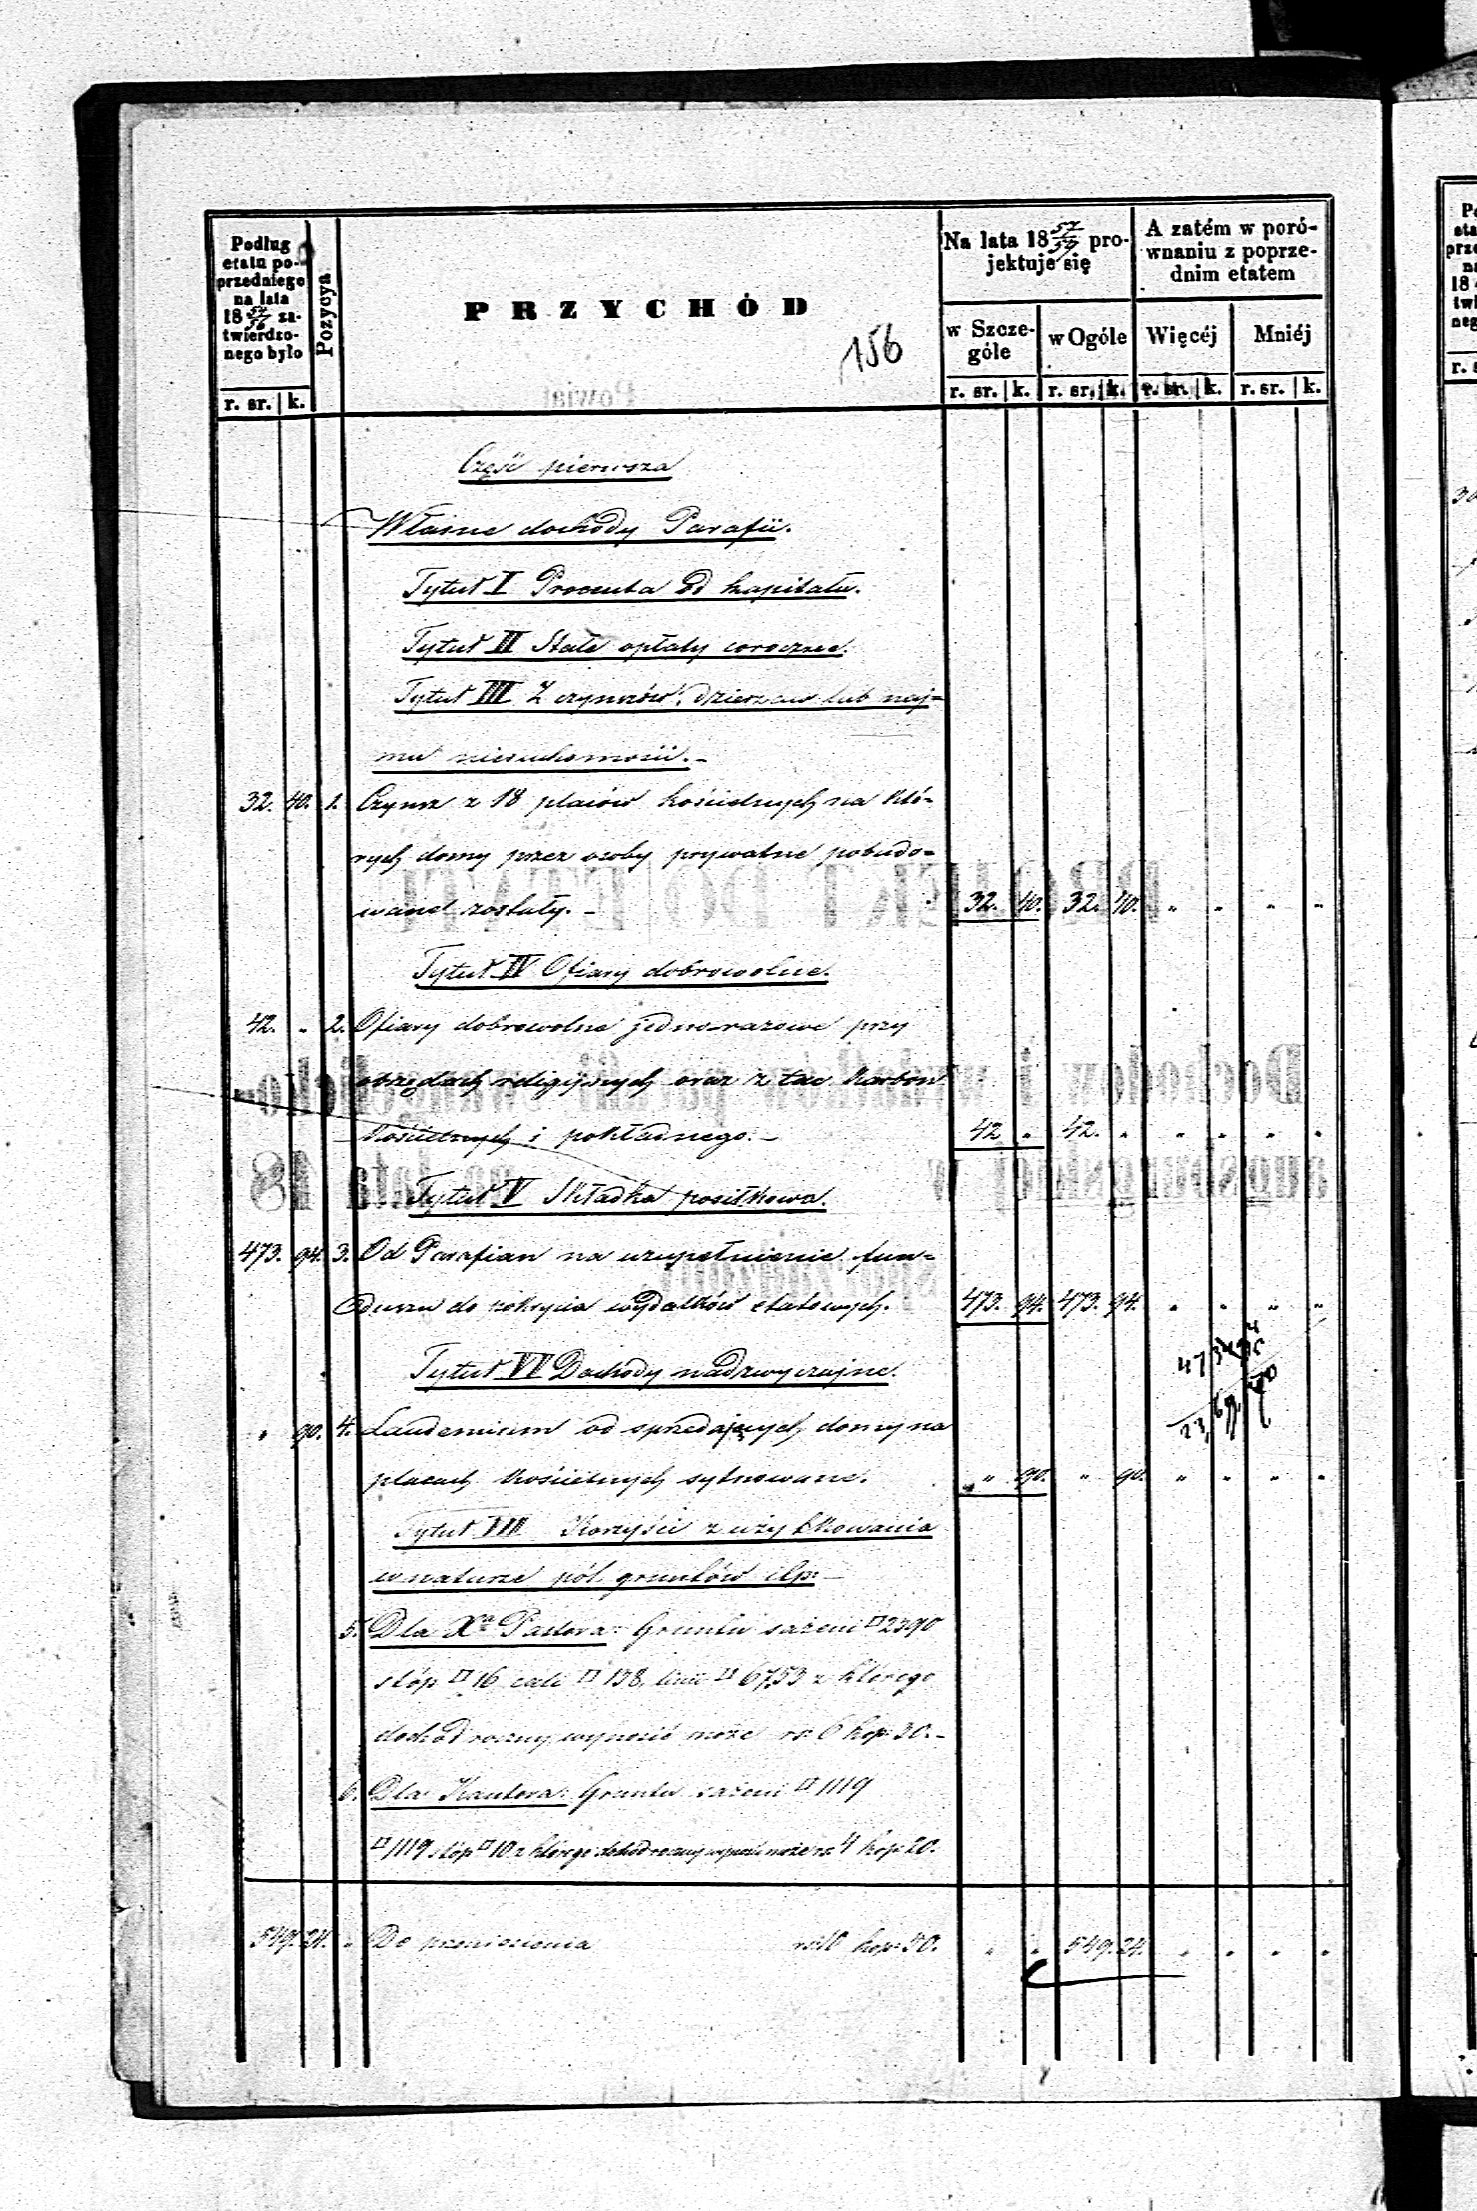 Podług
etatu po-
przedniego
na lata
18 54/56 za-
twierdzo-
nego było
r. sr. | k.
Pozycya
PRZYCHÓD
156
Na lata 18 57/59 pro-
jektuje się
w Szcze-
góle
r. sr. | k.
w Ogóle
r. sr. | k.
A zatém w poró-
wnaniu z poprze-
dnim etatem
Więcéj
r. sr. | k.
Mniéj
r. sr. | k.
Część pierwsza
Własne dochody Parafii.
Tytuł I Procenta od kapitału.
Tytuł II Stałe opłaty coroczne.
Tytuł III Z czynszów, dzierżaw lub naj=
mu nieruchomości. -
32. 40. 1. Czynsz z 18 placów kościelnych na któ=
rych domy przez osoby prywatne pobudo=
wane zostały. - 32. 40. 32. 40. " " " "
Tytuł IV Ofiary dobrowolne.
42. " 2. Ofiary dobrowolne jednorazowe przy
obrzędach religijnych oraz z tac karbon
kościelnych i pokładnego. - 42 " 42. " " " " "
Tytuł V Składka posiłkowa.
473. 94. 3. Od Parafian na uzupełnienie fun=
duszu do pokrycia wydatków etatowych. 473. 94. 473. 94. " " " "
Tytuł VI Dochody nadzwyczajne.
" 90. 4. Laudemium od sprzedających domy na
placach kościelnych sytuowane. " 90. " 90. " " " "
Tytuł VII Korzyści z użytkowania
w naturze pól, gruntów itp: -
5. Dla Xa Pastora: Gruntu sażeni □ 2390
stóp □ 16, cali □ 138, linii □ 6753 z którego
dochód roczny wynosić może rs: 6 kop: 30. -
6. Dla Kantora: Gruntu sażeni □ 1119
□ 1119 stóp □ 10 z którego dochód roczny wynosić może rs: 4 kop: 20.
549. 24. " Do przeniesienia rs: 10 kop: 50. " " 549. 24. " " " "